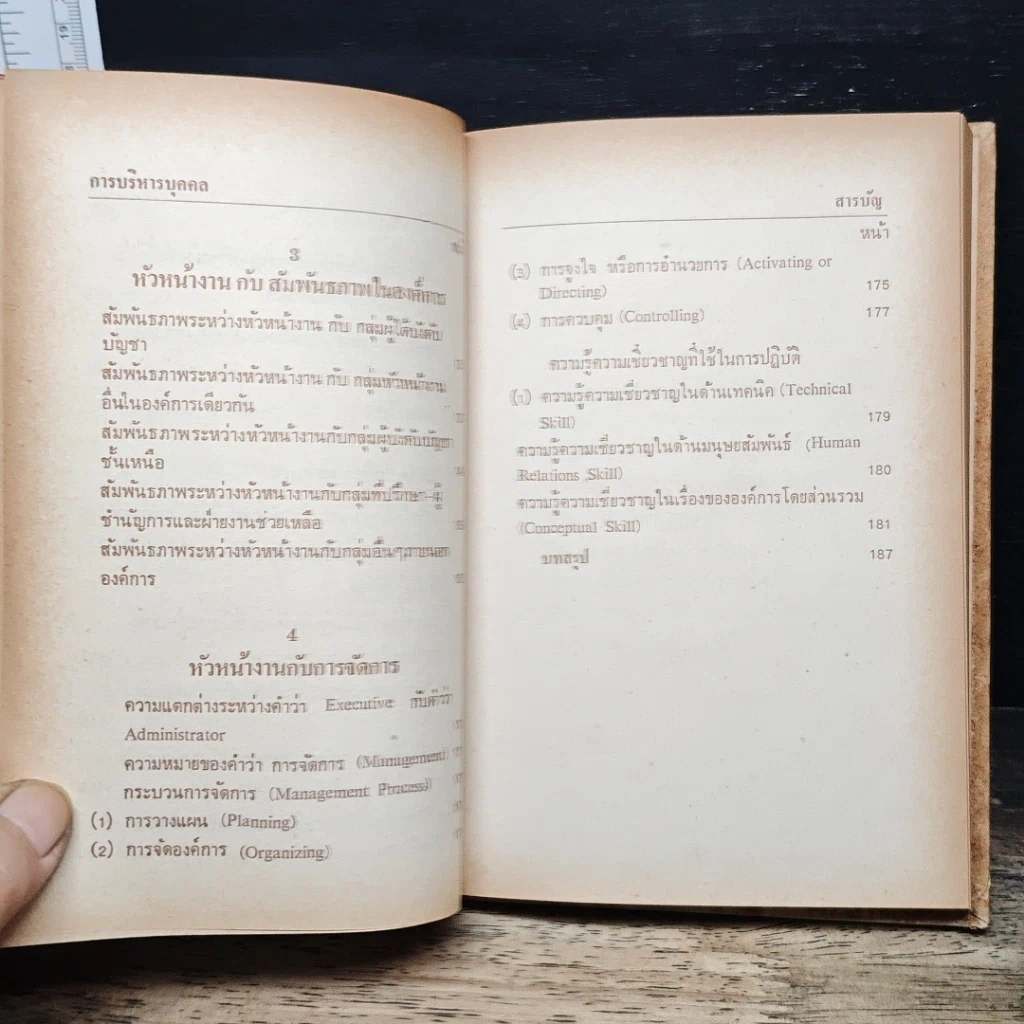 การบริหารบุคคล
3
หัวหน้างาน กับ สัมพันธภาพในองค์การ
สัมพันธภาพระหว่างหัวหน้างาน กับ กลุ่มผู้ใต้บังคับ
บัญชา
สัมพันธภาพระหว่างหัวหน้างาน กับ กลุ่มหัวหน้างาน
อื่นในองค์การเดียวกัน
สัมพันธภาพระหว่างหัวหน้างานกับกลุ่มผู้บังคับบัญชา
ชั้นเหนือ
สัมพันธภาพระหว่างหัวหน้างานกับกลุ่มที่ปรึกษา-ผู้
ชำนัญการและฝ่ายงานช่วยเหลือ
สัมพันธภาพระหว่างหัวหน้างานกับกลุ่มอื่นๆภายนอก
องค์การ
4
หัวหน้างานกับการจัดการ
ความแตกต่างระหว่างคำว่า Executive กับคำว่า
Administrator
ความหมายของคำว่า การจัดการ (Management)
กระบวนการจัดการ (Management Process)
(1) การวางแผน (Planning)
(2) การจัดองค์การ (Organizing)
สารบัญ
หน้า
(3) การจูงใจ หรือการอำนวยการ (Activating or
Directing) 175
(4) การควบคุม (Controlling) 177
ความรู้ความเชี่ยวชาญที่ใช้ในการปฏิบัติ
(1) ความรู้ความเชี่ยวชาญในด้านเทคนิค (Technical
Skill) 179
ความรู้ความเชี่ยวชาญในด้านมนุษยสัมพันธ์ (Human
Relations Skill) 180
ความรู้ความเชี่ยวชาญในเรื่องขององค์การโดยส่วนรวม
(Conceptual Skill) 181
บทสรุป 187